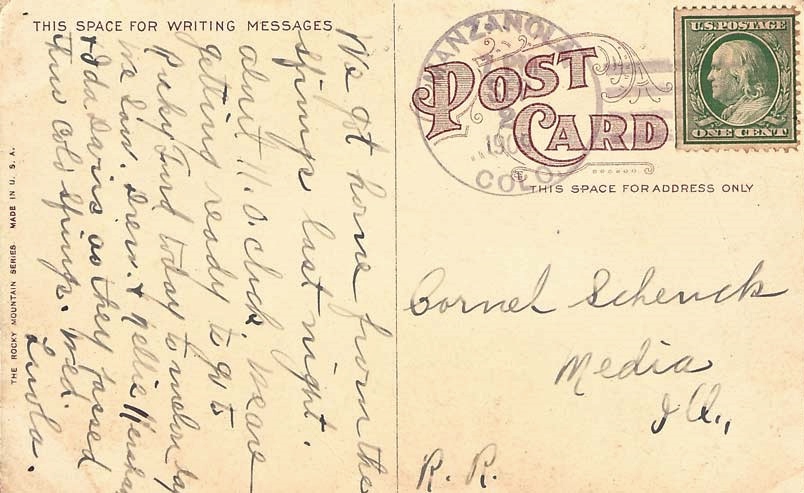 THIS SPACE FOR WRITING MESSAGES
We got home from the
springs last night.
about 11, O, clock, we are
getting ready to go to
Rocky Ford today to melon day
we saw. Drew. & Nellie
& Ida Davis as they passed
thru Colo Springs. Wed.
Luola.
THE ROCKY MOUNTAIN SERIES. MADE IN U. S. A.
MANZANOLA
2
190
COLO.
POST
CARD
U.S. POSTAGE
ONE CENT
THIS SPACE FOR ADDRESS ONLY
Cornel Schenck
Media
Ill.,
R. R.